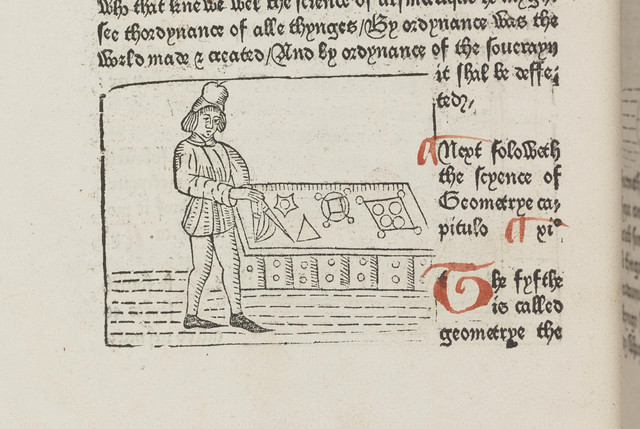 who that knewe wel the science of arsmetrique he myght
see thordynance of alle thynges/By ordynance was the
world made & created/And by ordynance of the souerayn
it shal be deffe⸗
ted/,
Next foloweth
the scyence of
Geometrye ca⸗
pitulo xi°
The fyfthe
is called
geometrye the